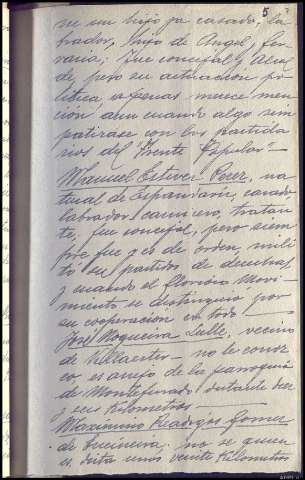 5
se un hijo ya casado, la-
brador, hijo de Angel, Jen-
naria; fue concejal y Alcal
de, pero su actuacion po-
litica apenas merece men-
ción aun cuando algo sim-
patizase con los partida
rios del "Frente Popular"-
Manuel Estevez Perez, na-
tural de casado,
labrador carnicero, tratan-
te, fue concejal, pero siem
pre fue y es de orden, mili
tó en partidos de derechas,
y cuando el glorioso Movi-
miento se distinguió por
su cooperacion en todo
José Nogueira Lulle, vecino
de Villaester - no le conoz
co es anejo de la parroquia
de Montefurado distante diez
y seis Kilometros -
Maximino Gomez
de no se quien
es, dista unos veinte Kilometros